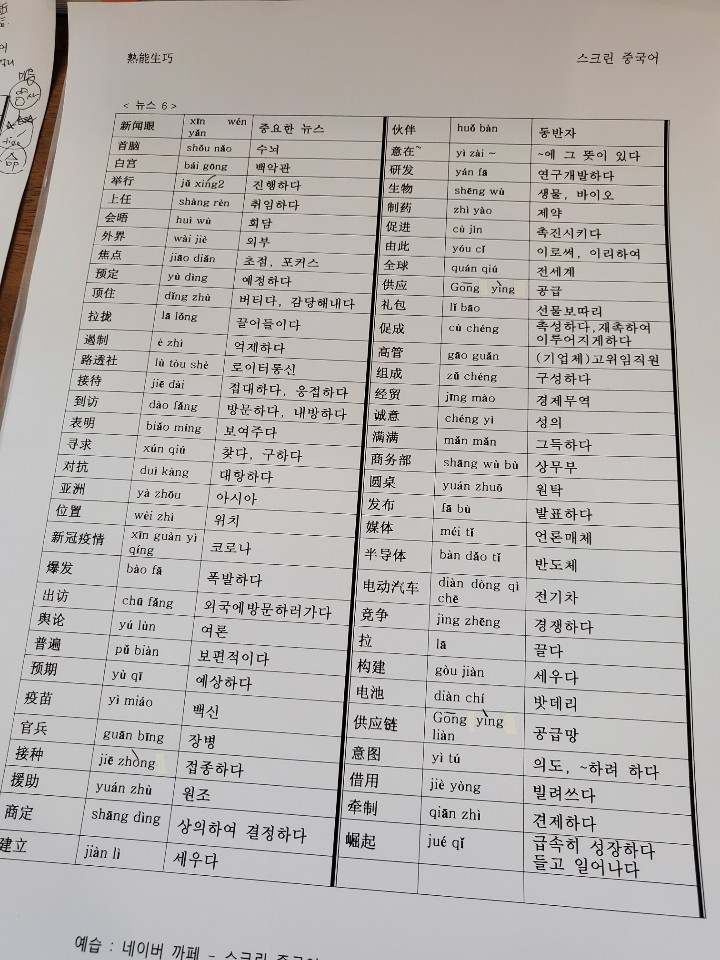 熟能生巧
스크린 중국어
< 뉴스 6 >
新闻眼 xīn wén yǎn 중요한 뉴스
首脑 shǒu nǎo 수뇌
白宫 bái gōng 백악관
举行 jǔ xíng2 진행하다
上任 shàng rèn 취임하다
会晤 huì wù 회담
外界 wài jiè 외부
焦点 jiāo diǎn 초점, 포커스
预定 yù dìng 예정하다
顶住 dǐng zhù 버티다, 감당해내다
拉拢 lā lǒng 끌어들이다
遏制 è zhì 억제하다
路透社 lù tòu shè 로이터통신
接待 jiē dài 접대하다, 응접하다
到访 dào fǎng 방문하다, 내방하다
表明 biǎo míng 보여주다
寻求 xún qiú 찾다, 구하다
对抗 duì kàng 대항하다
亚洲 yà zhōu 아시아
位置 wèi zhì 위치
新冠疫情 xīn guàn yì qíng 코로나
爆发 bào fā 폭발하다
出访 chū fǎng 외국에방문하러가다
舆论 yú lùn 여론
普遍 pǔ biàn 보편적이다
预期 yù qī 예상하다
疫苗 yì miáo 백신
官兵 guān bīng 장병
接种 jiē zhòng 접종하다
援助 yuán zhù 원조
商定 shāng dìng 상의하여 결정하다
建立 jiàn lì 세우다
伙伴 huǒ bàn 동반자
意在~ yì zài ~ ~에 그 뜻이 있다
研发 yán fā 연구개발하다
生物 shēng wù 생물, 바이오
制药 zhì yào 제약
促进 cù jìn 촉진시키다
由此 yóu cǐ 이로써, 이리하여
全球 quán qiú 전세계
供应 Gōng yìng 공급
礼包 lǐ bāo 선물보따리
促成 cù chéng 촉성하다,재촉하여 이루어지게하다
高管 gāo guǎn (기업체)고위임직원
组成 zǔ chéng 구성하다
经贸 jīng mào 경제무역
诚意 chéng yì 성의
满满 mǎn mǎn 그득하다
商务部 shāng wù bù 상무부
圆桌 yuán zhuō 원탁
发布 fā bù 발표하다
媒体 méi tǐ 언론매체
半导体 bàn dǎo tǐ 반도체
电动汽车 diàn dòng qì chē 전기차
竞争 jìng zhēng 경쟁하다
拉 lā 끌다
构建 gòu jiàn 세우다
电池 diàn chí 밧데리
供应链 Gōng yìng liàn 공급망
意图 yì tú 의도, ~하려 하다
借用 jiè yòng 빌려쓰다
牵制 qiān zhì 견제하다
崛起 jué qǐ 급속히 성장하다 들고 일어나다
예습 : 네이버 까페 - 스크린 중국어